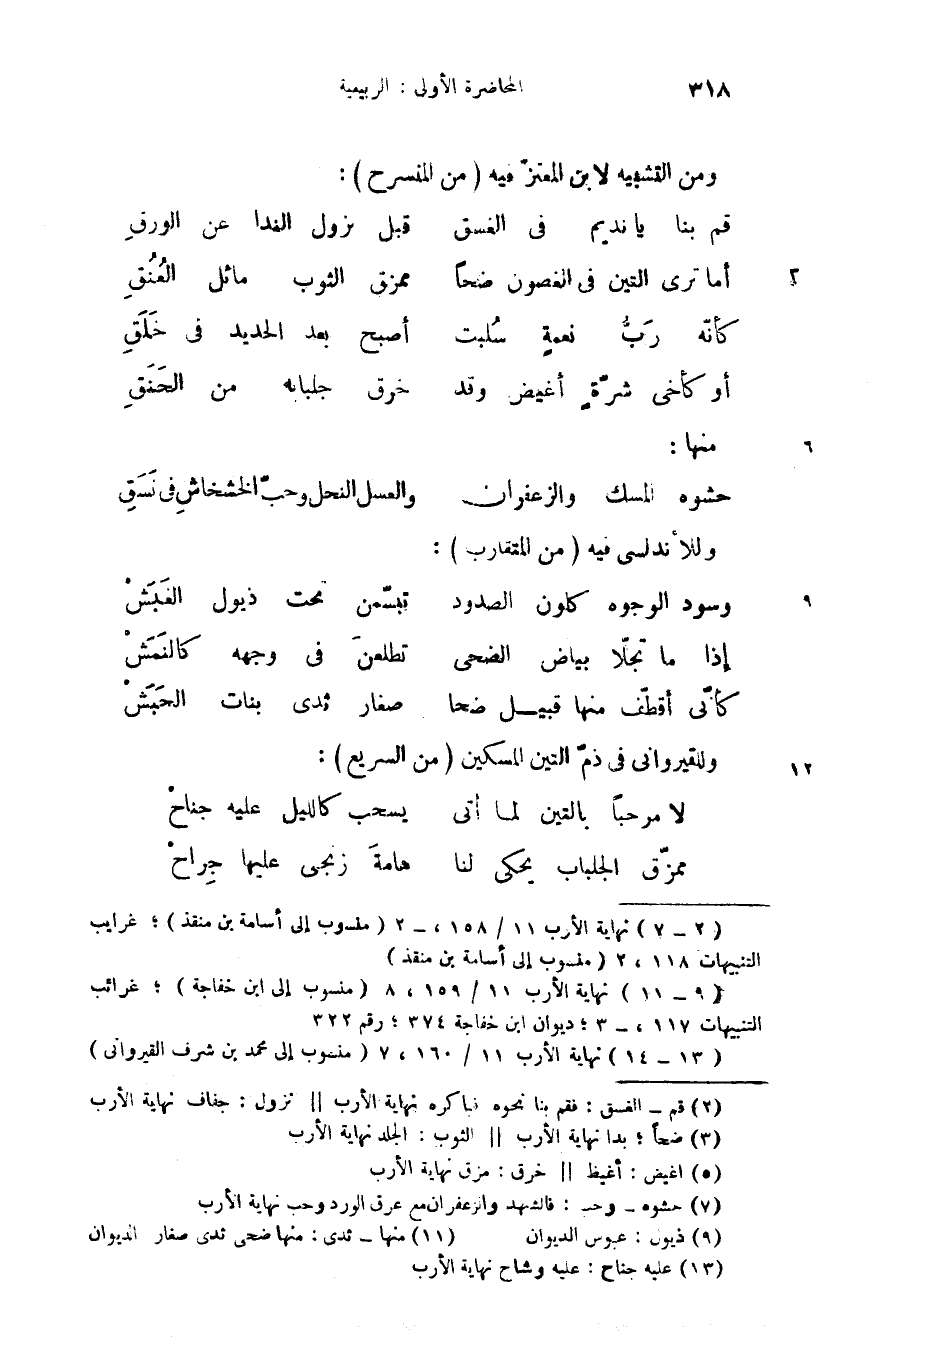 ٣١٨ المحاضرة الأولى : الربيعية
ومن التشبيه لابن المعتزّ فيه ( من المنسرح ) :
قم بنا يا نديم فى الغسق قبل نزول الندا عن الورقِ
٣ أما ترى التين فى الغصون ضحاً ممزق الثوب مائل العُنُقِ
كأنّه رَبُّ نعمةٍ سُلبت أصبح بعد الحديد فى خَلَقِ
أو كأخى شرّةٍ أغيض وقد خرق جلبابه من الحَنَقِ
٦ منها :
حشوه المسك والزعفران والعسل النحل وحبّ الخشخاشِ فى نَسَقِ
وللأندلسى فيه ( من المتقارب ) :
٩ وسود الوجوه كلون الصدود تبسّمن تحت ذيول الغَبَشْ
إذا ما تجلّا بياض الضحى تطلعنَ فى وجهه كالنَمَشْ
كأنّى أقطّف منها قبيل ضحا صغار ثدى بنات الحَبَشْ
١٢ وللقيروانى فى ذمّ التين المسكين ( من السريع ) :
لا مرحباً بالتين لما أتى يسحب كالليل عليه جناحْ
ممزّق الجلباب يحكى لنا هامةَ زنجى عليها جِراحْ
( ٢ – ٧ ) نهاية الأرب ١١ / ١٥٨ ، – ٢ ( منسوب إلى أسامة بن منقذ ) ؛ غرايب
التنبيهات ١١٨ ، ٢ ( منسوب إلى أسامة بن منقذ )
( ٩ – ١١ ) نهاية الأرب ١١ / ١٥٩ ، ٨ ( منسوب إلى ابن خفاجة ) ؛ غرائب
التنبيهات ١١٧ ، – ٣ ؛ ديوان ابن خفاجة ٣٧٤ ؛ رقم ٣٢٢
( ١٣ – ١٤ ) نهاية الأرب ١١ / ١٦٠ ، ٧ ( منسوب إلى محمد بن شرف القيروانى )
(٢) قم – الغسق : فقم بنا نحوه نباكره نهاية الأرب || نزول : جفاف نهاية الأرب
(٣) ضحاً ؛ بدا نهاية الأرب || الثوب : الجلد نهاية الأرب
(٥) اغيض : أغيظ || خرق : مزق نهاية الأرب
(٧) حشوه – وحب : فالشهد والزعفران مع عرق الورد وحب نهاية الأرب
(٩) ذيول : عبوس الديوان (١١) منها – ثدى : منها ضحى ثدى صغار الديوان
(١٣) عليه جناح : عليه وشاح نهاية الأرب